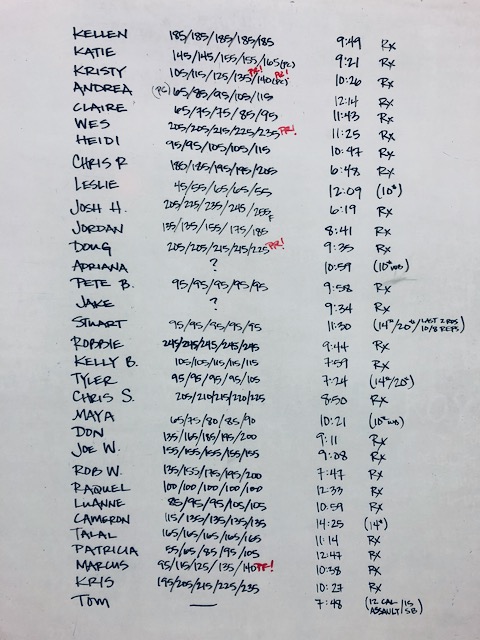 KELLEN 185/185/185/185/185 9:49 Rx
KATIE 145/145/155/155/165(PC) 9:21 Rx
KRISTY 105/115/125/135 PR!/140(PC) PR! 10:26 Rx
ANDREA (PC) 65/85/95/105/115 12:14 Rx
CLAIRE 65/75/75/85/95 11:43 Rx
WES 205/205/215/225/235 PR! 11:25 Rx
HEIDI 95/95/105/105/115 10:47 Rx
CHRIS R 185/185/195/195/205 6:48 Rx
LESLIE 45/55/65/65/55 12:09 (10#)
JOSH H. 205/225/235/245/255F 6:19 Rx
JORDAN 135/135/155/175/185 8:41 Rx
DOUG 205/205/215/215/225 PR! 9:35 Rx
ADRIANA ? 10:59 (10#WB)
PETE B. 95/95/95/95/95 9:58 Rx
JAKE ? 9:34 Rx
STUART 95/95/95/95/95 11:30 (14#/20#/LAST 2 RDS 10/8 REPS)
ROBBIE 245/245/245/245/245 9:44 Rx
KELLY B. 105/105/115/115/115 7:59 Rx
TYLER 95/95/95/95/105 7:24 (14#/20#)
CHRIS S. 205/210/215/220/225 8:50 Rx
MAYA 65/75/80/85/90 10:21 (10#WB)
DON 135/165/185/195/200 9:11 Rx
JOE W. 155/155/155/155/155 9:08 Rx
ROB W. 135/155/175/195/200 7:47 Rx
RAQUEL 100/100/100/100/100 12:33 Rx
LUANNE 85/95/95/105/105 10:59 Rx
CAMERON 115/135/135/135/135 14:25 (14#)
TALAL 165/165/165/165/165 11:14 Rx
PATRICIA 55/65/85/95/105 12:47 Rx
MARCUS 95/115/125/135/140 PR! 10:38 Rx
KRIS 195/205/215/225/235 10:27 Rx
TOM — 7:48 (12 CAL ASSAULT/15 SB)